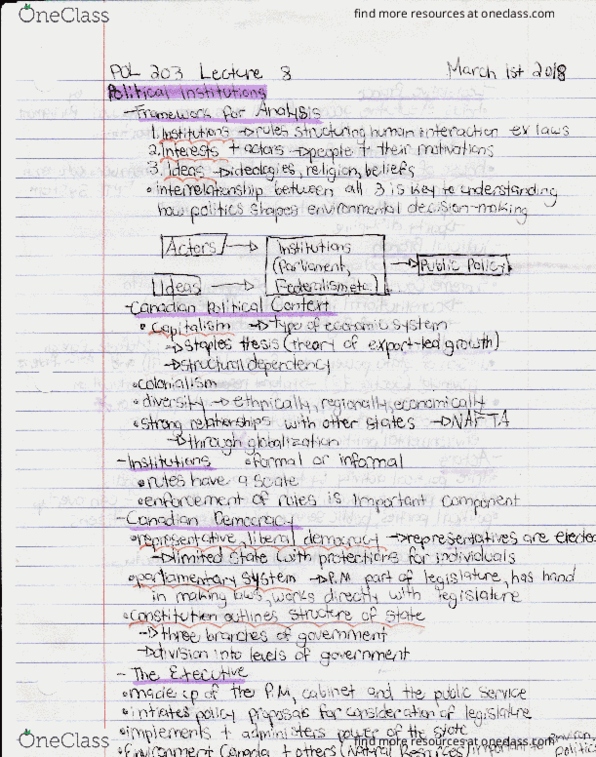 OneClass
find more resources at oneclass.com
POL 203 Lecture 8 March 1st 2018
Political Institutions
-Framework for Analysis
1. Institutions → rules structuring human interaction ex laws
2. Interests + actors → people + their motivations
3. Ideas → ideologies, religion, beliefs
• interrelationship between all 3 is key to understanding
how politics shapes environmental decision-making
Actors → Institutions
(Parliament, → Public Policy
Ideas → Federalism etc.)
-Canadian Political Context
• Capitalism → type of economic system
→ staples thesis (theory of export-led growth)
→ structural dependency
• colonialism
• diversity → ethnically, regionally, economically
• strong relationships with other states → NAFTA
→ through globalization
- Institutions • formal or informal
• rules have a scale
• enforcement of rules is important component
- Canadian Democracy
• representative, liberal democracy → representatives are elected
→ limited state with protections for individuals
• parliamentary system → P.M part of legislature, has hand
in making laws, works directly with legislature
• constitution outlines structure of state
→ three branches of government
→ division into levels of government
- The Executive
• made up of the P.M, cabinet and the public service
• intiates policy proposals for consideration of legislature
• implements + administers power of the state
• Environment Canada + others (Natural Resources) important to
OneClass
find more resources at oneclass.com